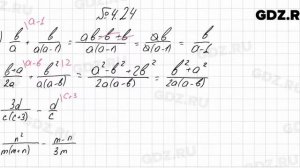 №424
GDZ.R
) b/a \a-1 + b/(a(a-1)) = (ab-b+b)/(a(a-1)) = ab/(a(a-1)) = b/(a-1)
(b+a)/2a \a-b + b²/(a(a-b)) \2 = (a²-b²+2b²)/(2a(a-b)) = (b²+a²)/(2a(a-b))
3d/(c(c+3)) - d/c \c+3
n²/(m(m+n)) - (m-n)/3m
GDZ.RU